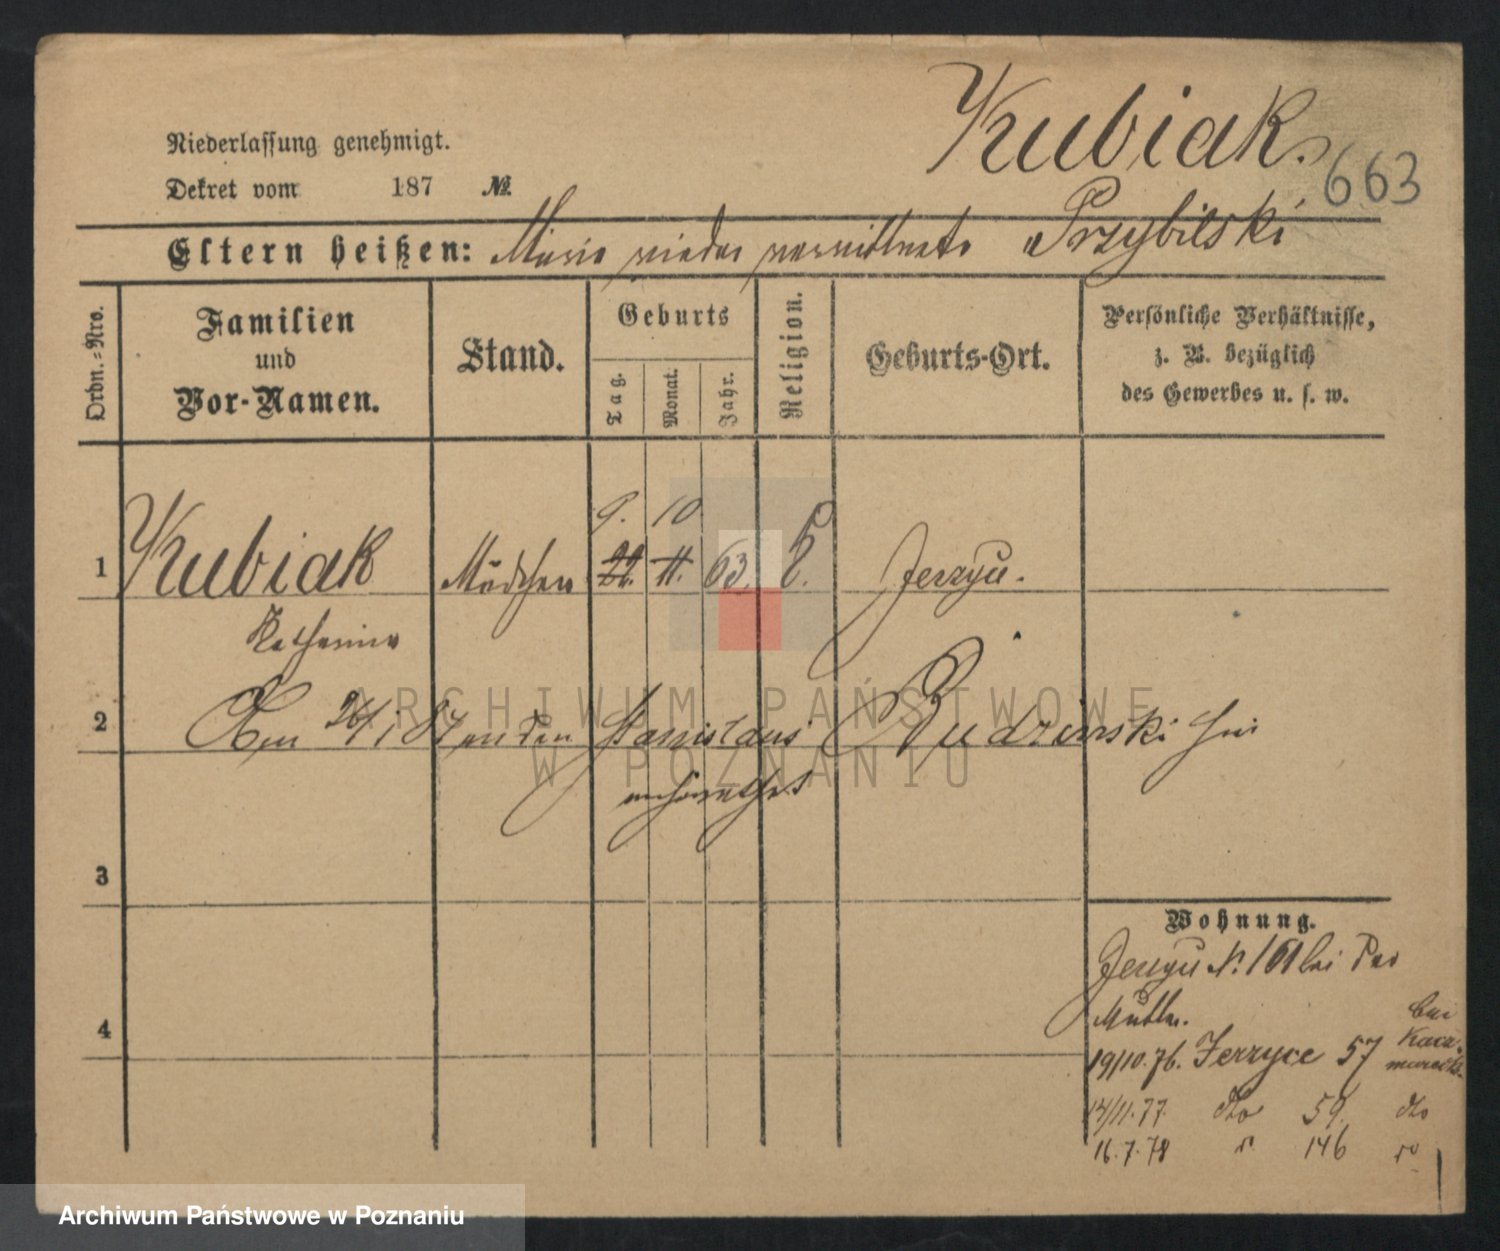 Kubiak.
663
Niederlassung genehmigt.
Dekret vom 187 №
Eltern heißen: Marie wieder verwittwete Przybilski
Ordn.=Nro.
Familien
und
Vor-Namen.
Stand.
Geburts
Tag.
Monat.
Jahr.
Religion.
Geburts-Ort.
Persönliche Verhältnisse,
z. B. bezüglich
des Gewerbes u. s. w.
9. 10
1 Kubiak Mädchen 22. 11. 63. Jerzyce.
Katharina
2 Am 26/1 87 an den Stanislaus Budzinski hier
verheirathet
3
4
Wohnung.
Jerzyce N. 161 bei der
Mutter.
19/10.76. Jerzyce 57 bei Kaczmarek
14/11.77. dto 59. dto
16.7.78 " 146
ARCHIWUM PAŃSTWOWE
W POZNANIU
Archiwum Państwowe w Poznaniu